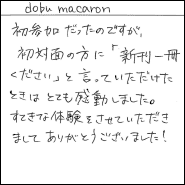 dobu macaron
初参加だったのですが、
初対面の方に「新刊一冊
ください」と言っていただけた
ときは とても感動しました。
すてきな体験をさせていただき
まして ありがとうございました!